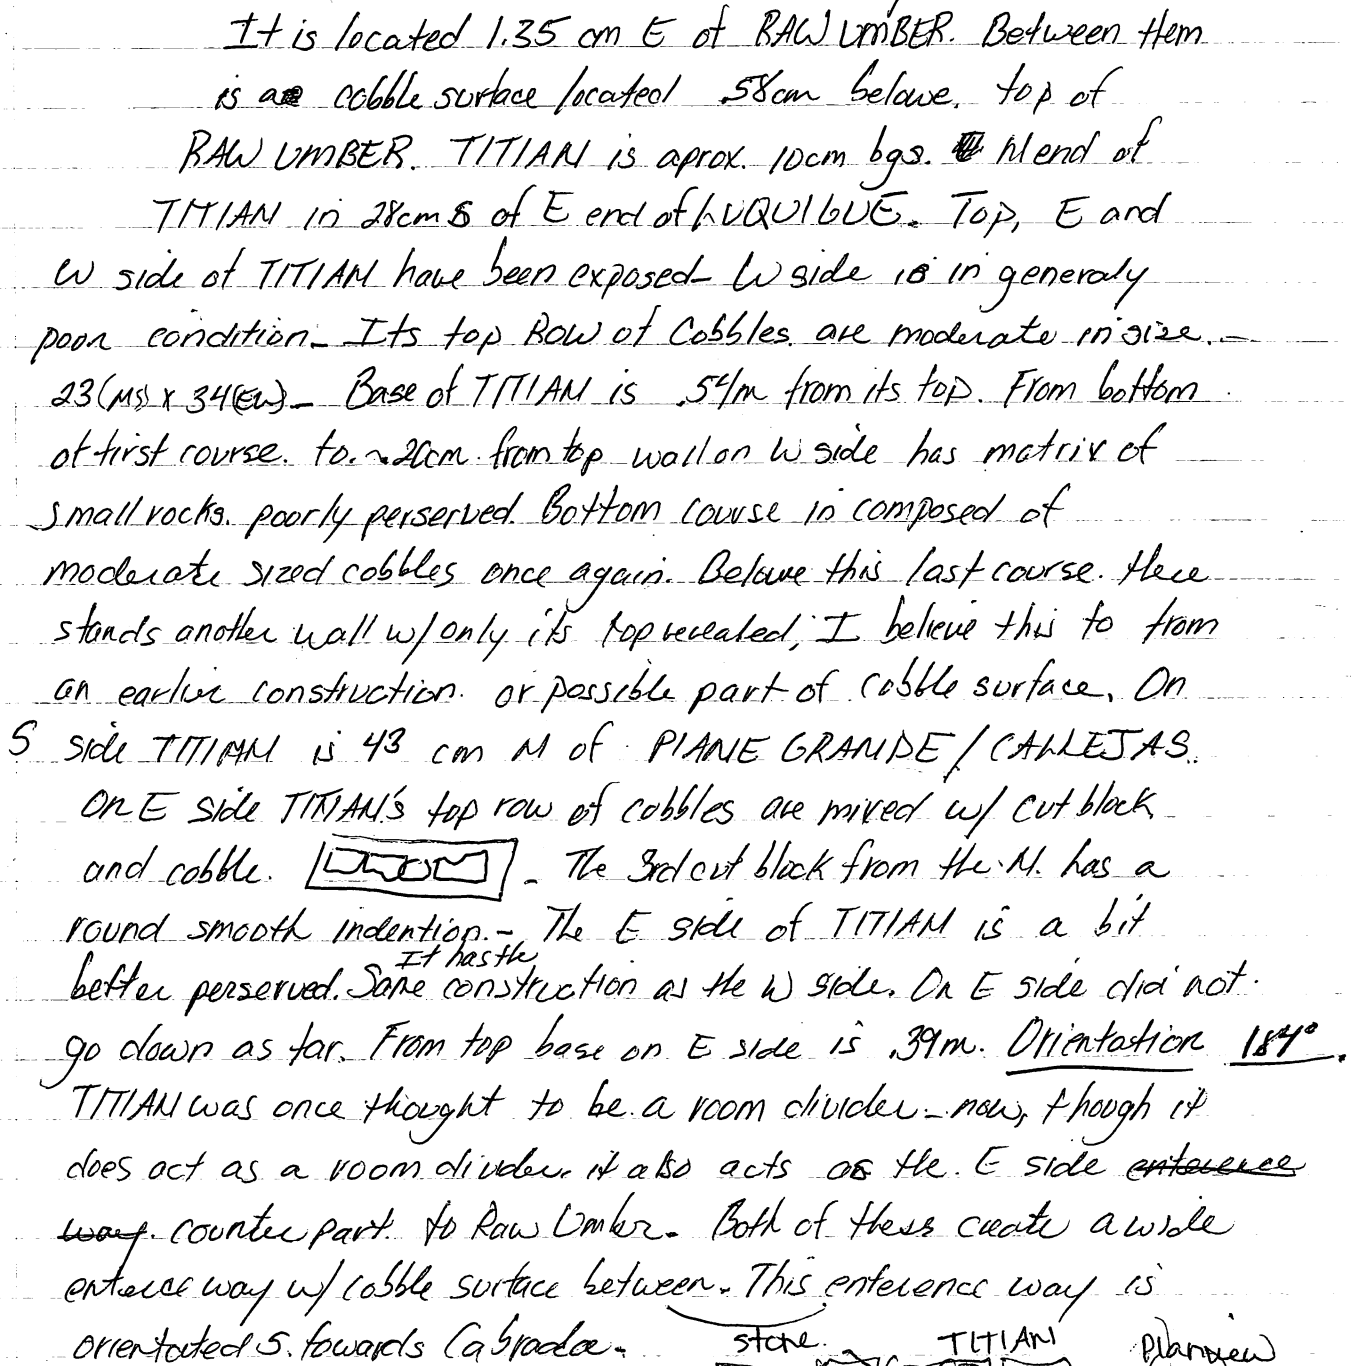 It is located 1.35 cm E of RAW UMBER. Between them
is a cobble surface located .58cm belowe. top of
RAW UMBER. TITIAN is aprox. 10cm bgs. N end of
TITIAN in 28cm S of E end of LUQUIGUE. Top, E and
W side of TITIAN have been exposed- W side is in generaly
poor condition- Its top Row of Cobbles are moderate in size. -
23(NS) x 34(EW)- Base of TITIAN is .54m from its top. From bottom
of first course. to. ~20cm from top wall on W side has matrix of
small rocks. poorly perserved. Bottom course in composed of
moderate sized cobbles once again. Belowe this last course. there
stands another wall w/ only its top revealed; I believe this to from
an earlier construction. or possible part of cobble surface. On
S side TITIAN is 43 cm N of PIANE GRANDE/CALLEJAS.
On E side TITIAN's top row of cobbles are mixed w/ cut block
and cobble. - The 3rd cut block from the N. has a
round smooth indention.- The E side of TITIAN is a bit
It has the
better perserved. Same construction as the W side. On E side did not
go down as far. From top base on E side is .39m. Orientation 184°.
TITIAN was once thought to be a room divider - now, though it
does act as a room divider. it also acts as the E side enterence
way. counter part to Raw Umber. Both of thess create a wide
enterce way w/ cobble surface between. This enterence way is
orientated S. towards Cabrador.
stone TITIAN Planview